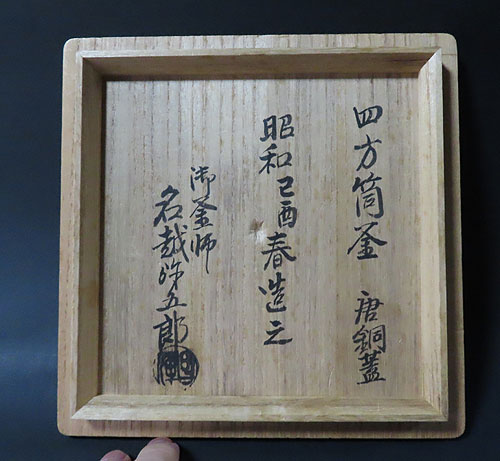 四方筒釜 唐銅蓋
昭和己酉春造之
御釜師
名越弥五郎